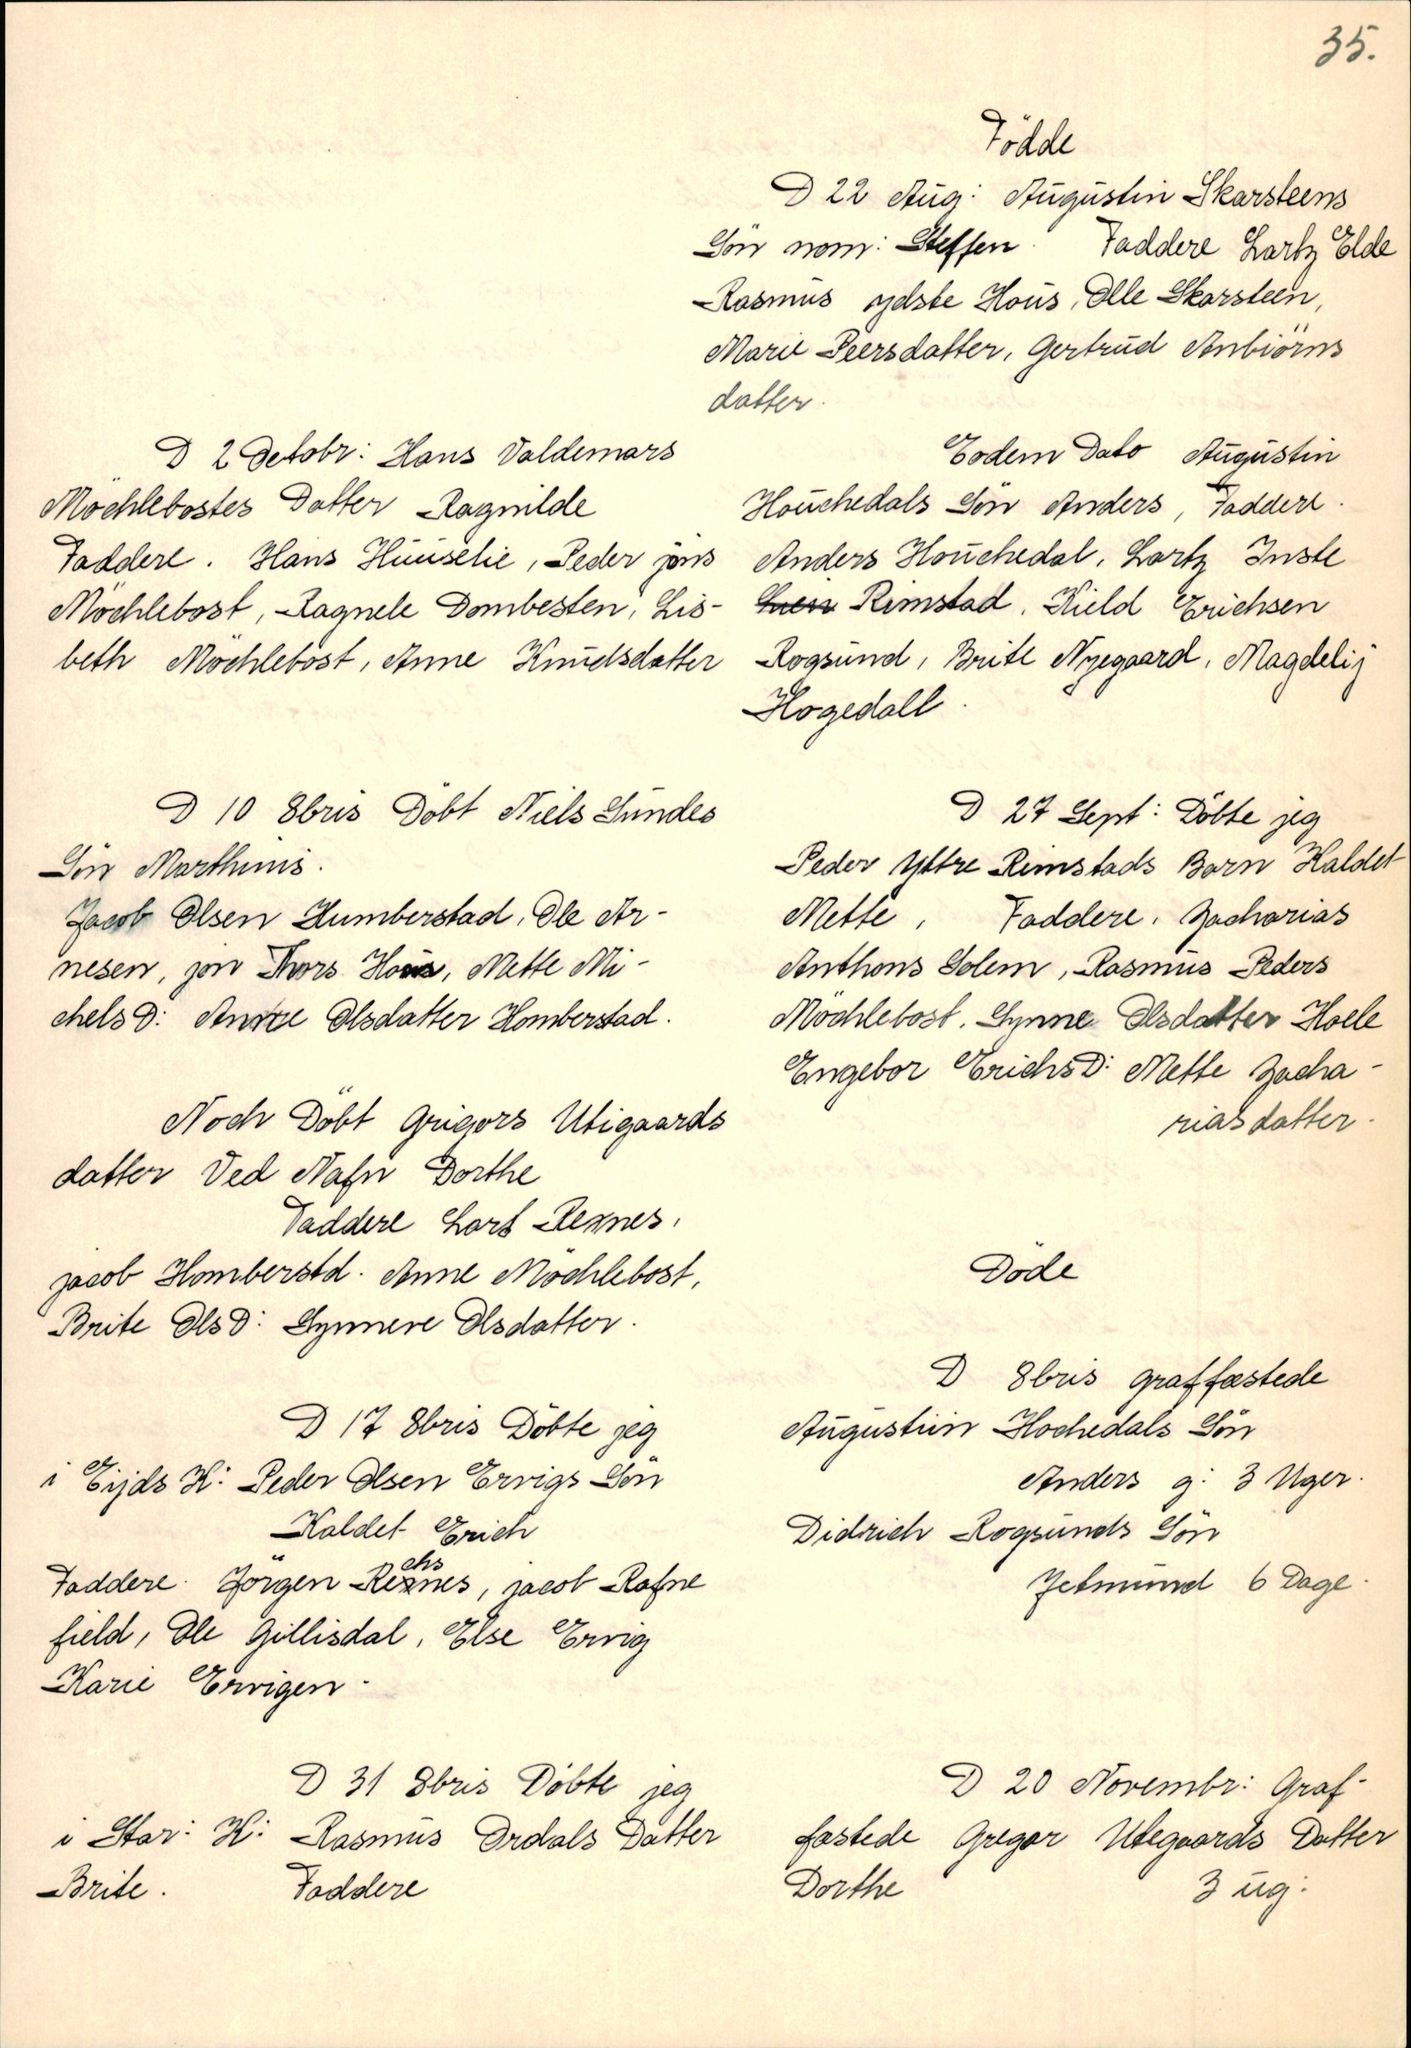 35.
Födde
D 22 Aug: Augustin Skarsteens
Sön nom: Steffen. Faddere Lartz Elde
Rasmus ydste Hous, Olle Skarsteen,
Marie Peersdatter, Gertrud Anbiörns
datter.
Eodem Dato Augustin
Houchedals Sön Anders, Faddere.
Anders Houchedal, Lartz Inste
Rimstad. Kield Erichsen
Rogsund, Brite Nyegaard, Magdelij
Hogedall.
D 27 Sept: Döbte jeg
Peder Yttre Rimstads Barn Kaldet
Mette, Faddere. Zacharias
Anthons Solem, Rasmus Peders
Möchlebost. Synne Olsdatter Hoele
Engebor Erichs D: Mette Zacha-
riasdatter.
Döde
D 8bris graffæstede
Augustiin Hochedals Sön
Anders g: 3 Uger.
Didrich Rogsunds Sön
Jetmund 6 Dage.
D 20 Novembr: Graf-
fæstede Gregor Utegaards Datter
Dorthe 3 ug:
D 2 Octobr: Hans Valdemars
Möchlebostes Datter Ragnilde
Faddere. Hans Huuselie, Peder jöns
Möchlebost, Ragnele Dombesten, Lis-
beth Möchlebost, Anne Knudsdatter
D 10 8bris Döbt Niels Sundes
Sön Marthinis.
Jacob Olsen Humberstad, Ole Ar-
nesen, jon Thors Hous, Mette Mi-
chels D: Anne Olsdatter Homberstad.
Noch Döbt Grigors Utigaards
datter Ved Nafn Dorthe
Faddere Lars Rexnes,
jacob Homberstd. Anne Möchlebost,
Brite Ols D: Synnere Olsdatter.
D 17 8bris Döbte jeg
i Eijds K: Peder Olsen Ervigs Sön
Kaldet Erich
chs
Faddere. Jörgen Rexnes, jacob Rafne
field, Ole Gillisdal, Else Ervig
Karie Ervigen.
D 31 8bris Döbte jeg
i Star: K: Rasmus Ordals Datter
Brite. Faddere